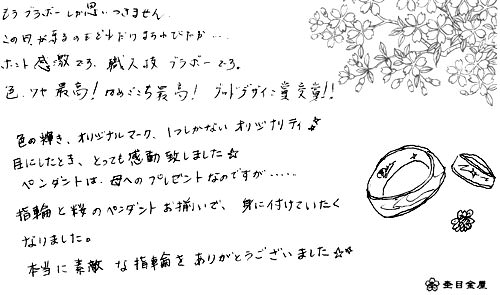 もうブラボーしか思いつきません
この日が来るのをどれだけ待ちわびたか・・・
ホント感激です。職人技ブラボーです。
色、ツヤ最高！はめごこち最高！グッドデザイン賞受賞!!
色の輝き、オリジナルマーク、1つしかないオリジナリティ☆
目にしたとき、とっても感動致しました☆
ペンダントは、母へのプレゼントなのですが・・・・・
指輪と桜のペンダントお揃いで、身に付けていたく
なりました。
本当に素敵な指輪をありがとうございました☆
杢目金屋